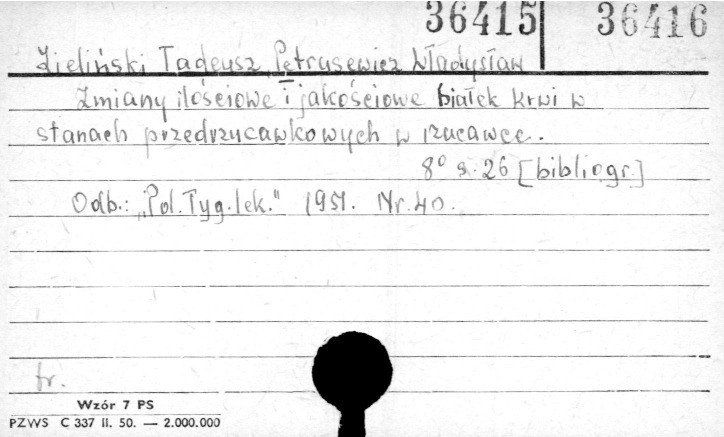 36415 36416
Zieliński Tadeusz, Petrusewicz Władysław
Zmiany ilościowe i jakościowe białek krwi w
stanach przedrzucawkowych w rzucawce.
8° s. 26 [bibliogr.]
Odb.: „Pol. Tyg. lek." 1951. Nr. 40.
fr.
Wzór 7 PS
PZWS C 337 II. 50. — 2.000.000